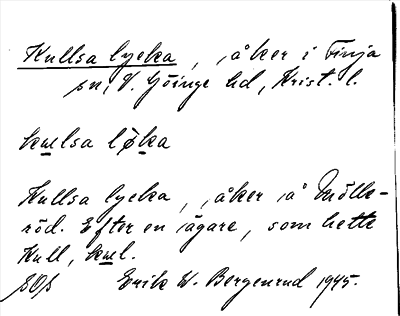 Kullsa lycka, åker i Finja
sn, V. Göinge hd, Krist. l.
kulsa løka
Kullsa lycka, åker å Mölle-
röd. Efter en ägare, som hette
Kull, kul.
Erik W. Bergenrud 1945.